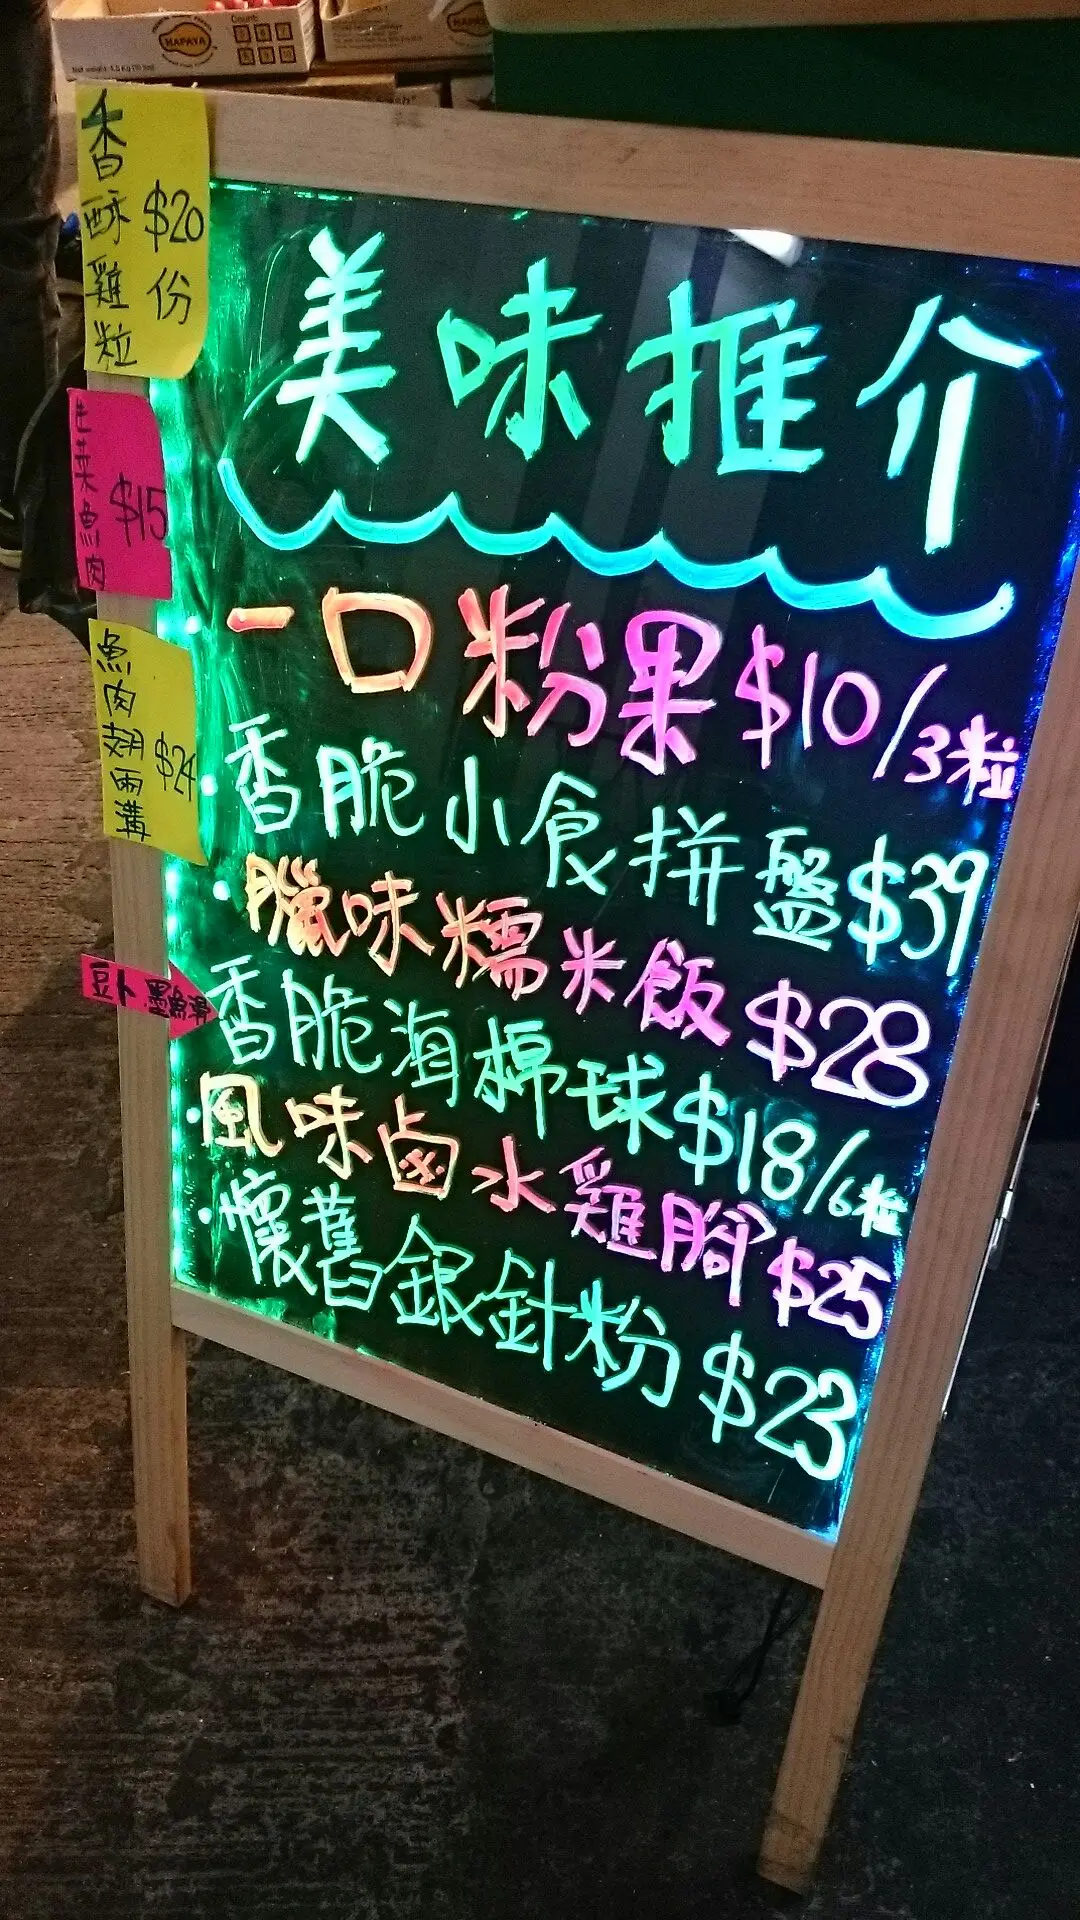 HAPAYA
Count:
香酥雞粒
$20
份
生菜魚肉
$15
魚肉翅兩溝
$24
豆卜墨魚滑
美味推介
一口粉果$10/3粒
香脆小食拼盤$39
臘味糯米飯$28
香脆海棉球$18/6粒
風味鹵水雞腳$25
懷舊銀針粉$23